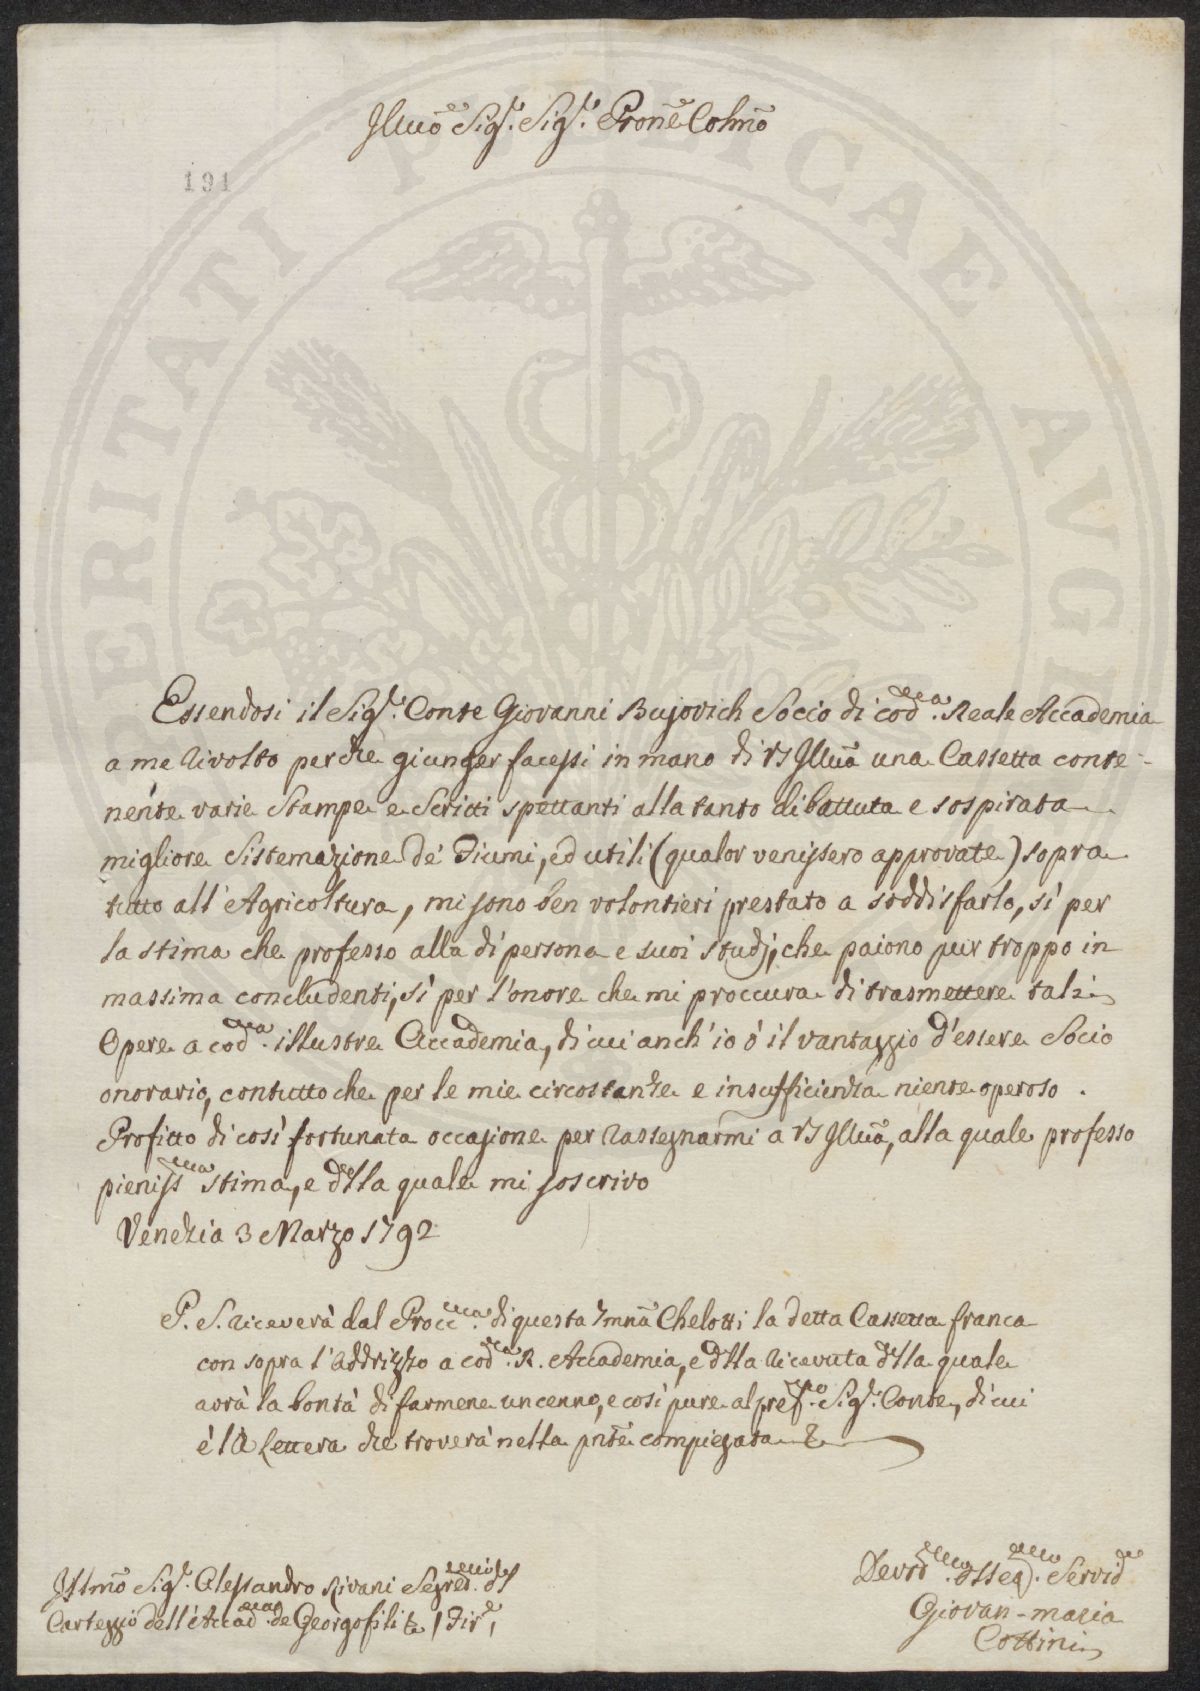 Illmo Sig.r Sig.r Prone Colmo
191
PROSPERITATI PUBLICAE AVGE
Essendosi il Sig.r Conte Giovanni Bujovich Socio di cod.a Reale Accademia
a me rivolto perchè giunger facessi in mano di VS Illma una Cassetta conte-
nente varie Stampe e Scritti spettanti alla tanto dibattuta e sospirata
migliore Sistemazione de' Fiumi, ed utili (qualor venissero approvate) sopra
tutto all'Agricoltura, mi sono ben volontieri prestato a soddisfarlo, sì per
la stima che professo alla di persona e suoi studj, che paiono pur troppo in
massima concludenti, sì per l'onore che mi proccura di trasmettere tali
Opere a cod.a illustre Accademia, di cui anch'io ò il vantaggio d'essere Socio
onorario, contuttoche per le mie circostanze e insufficienza niente operoso.
Profitto di così fortunata occasione per rassegnarmi a VS Illma, alla quale professo
pieniss.ma stima, e della quale mi soscrivo
Venezia 3 Marzo 1792
P. S. riceverà dal Procc.a di questa Chelotti la detta Cassetta franca
con sopra l'Addrizzo a cod.a R. Accademia, e della ricevuta della quale
avrà la bontà di farmene un cenno, e così pure al pref.o Sig.r Conte, di cui
è la Lettera che troverà nella pnte compiegata
Illmo Sig.r Alessandro Rivani Segred.
Carteggio dell'Accad.a de Georgofili Fir.e
Dev.mo Osseq.mo Servid.e
Giovan-maria
Cottini